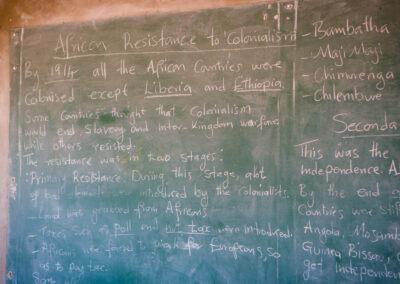 African Resistance to Colonialism
By 1914 all the African Countries were
Colonised except Liberia and Ethiopia.
Some Countries thought that Colonialism
would end Slavery and Inter-Kingdom warfare
while others resisted.
The resistance was in two stages:
Primary Resistance: During this stage, alot
of introduced by the colonialists.
- Land was grabbed from Africans
- Taxes such as Poll and hut tax were introduced.
- Africans were forced to work for Europeans so
as to pay tax.
- Bambatha
- Maji Maji
- Chimurenga
- Chilembwe
Seconda
This was the
Independence. A
By the end
Countries were still
Angola, Mozamb
Guinea Bissau,
get Independen